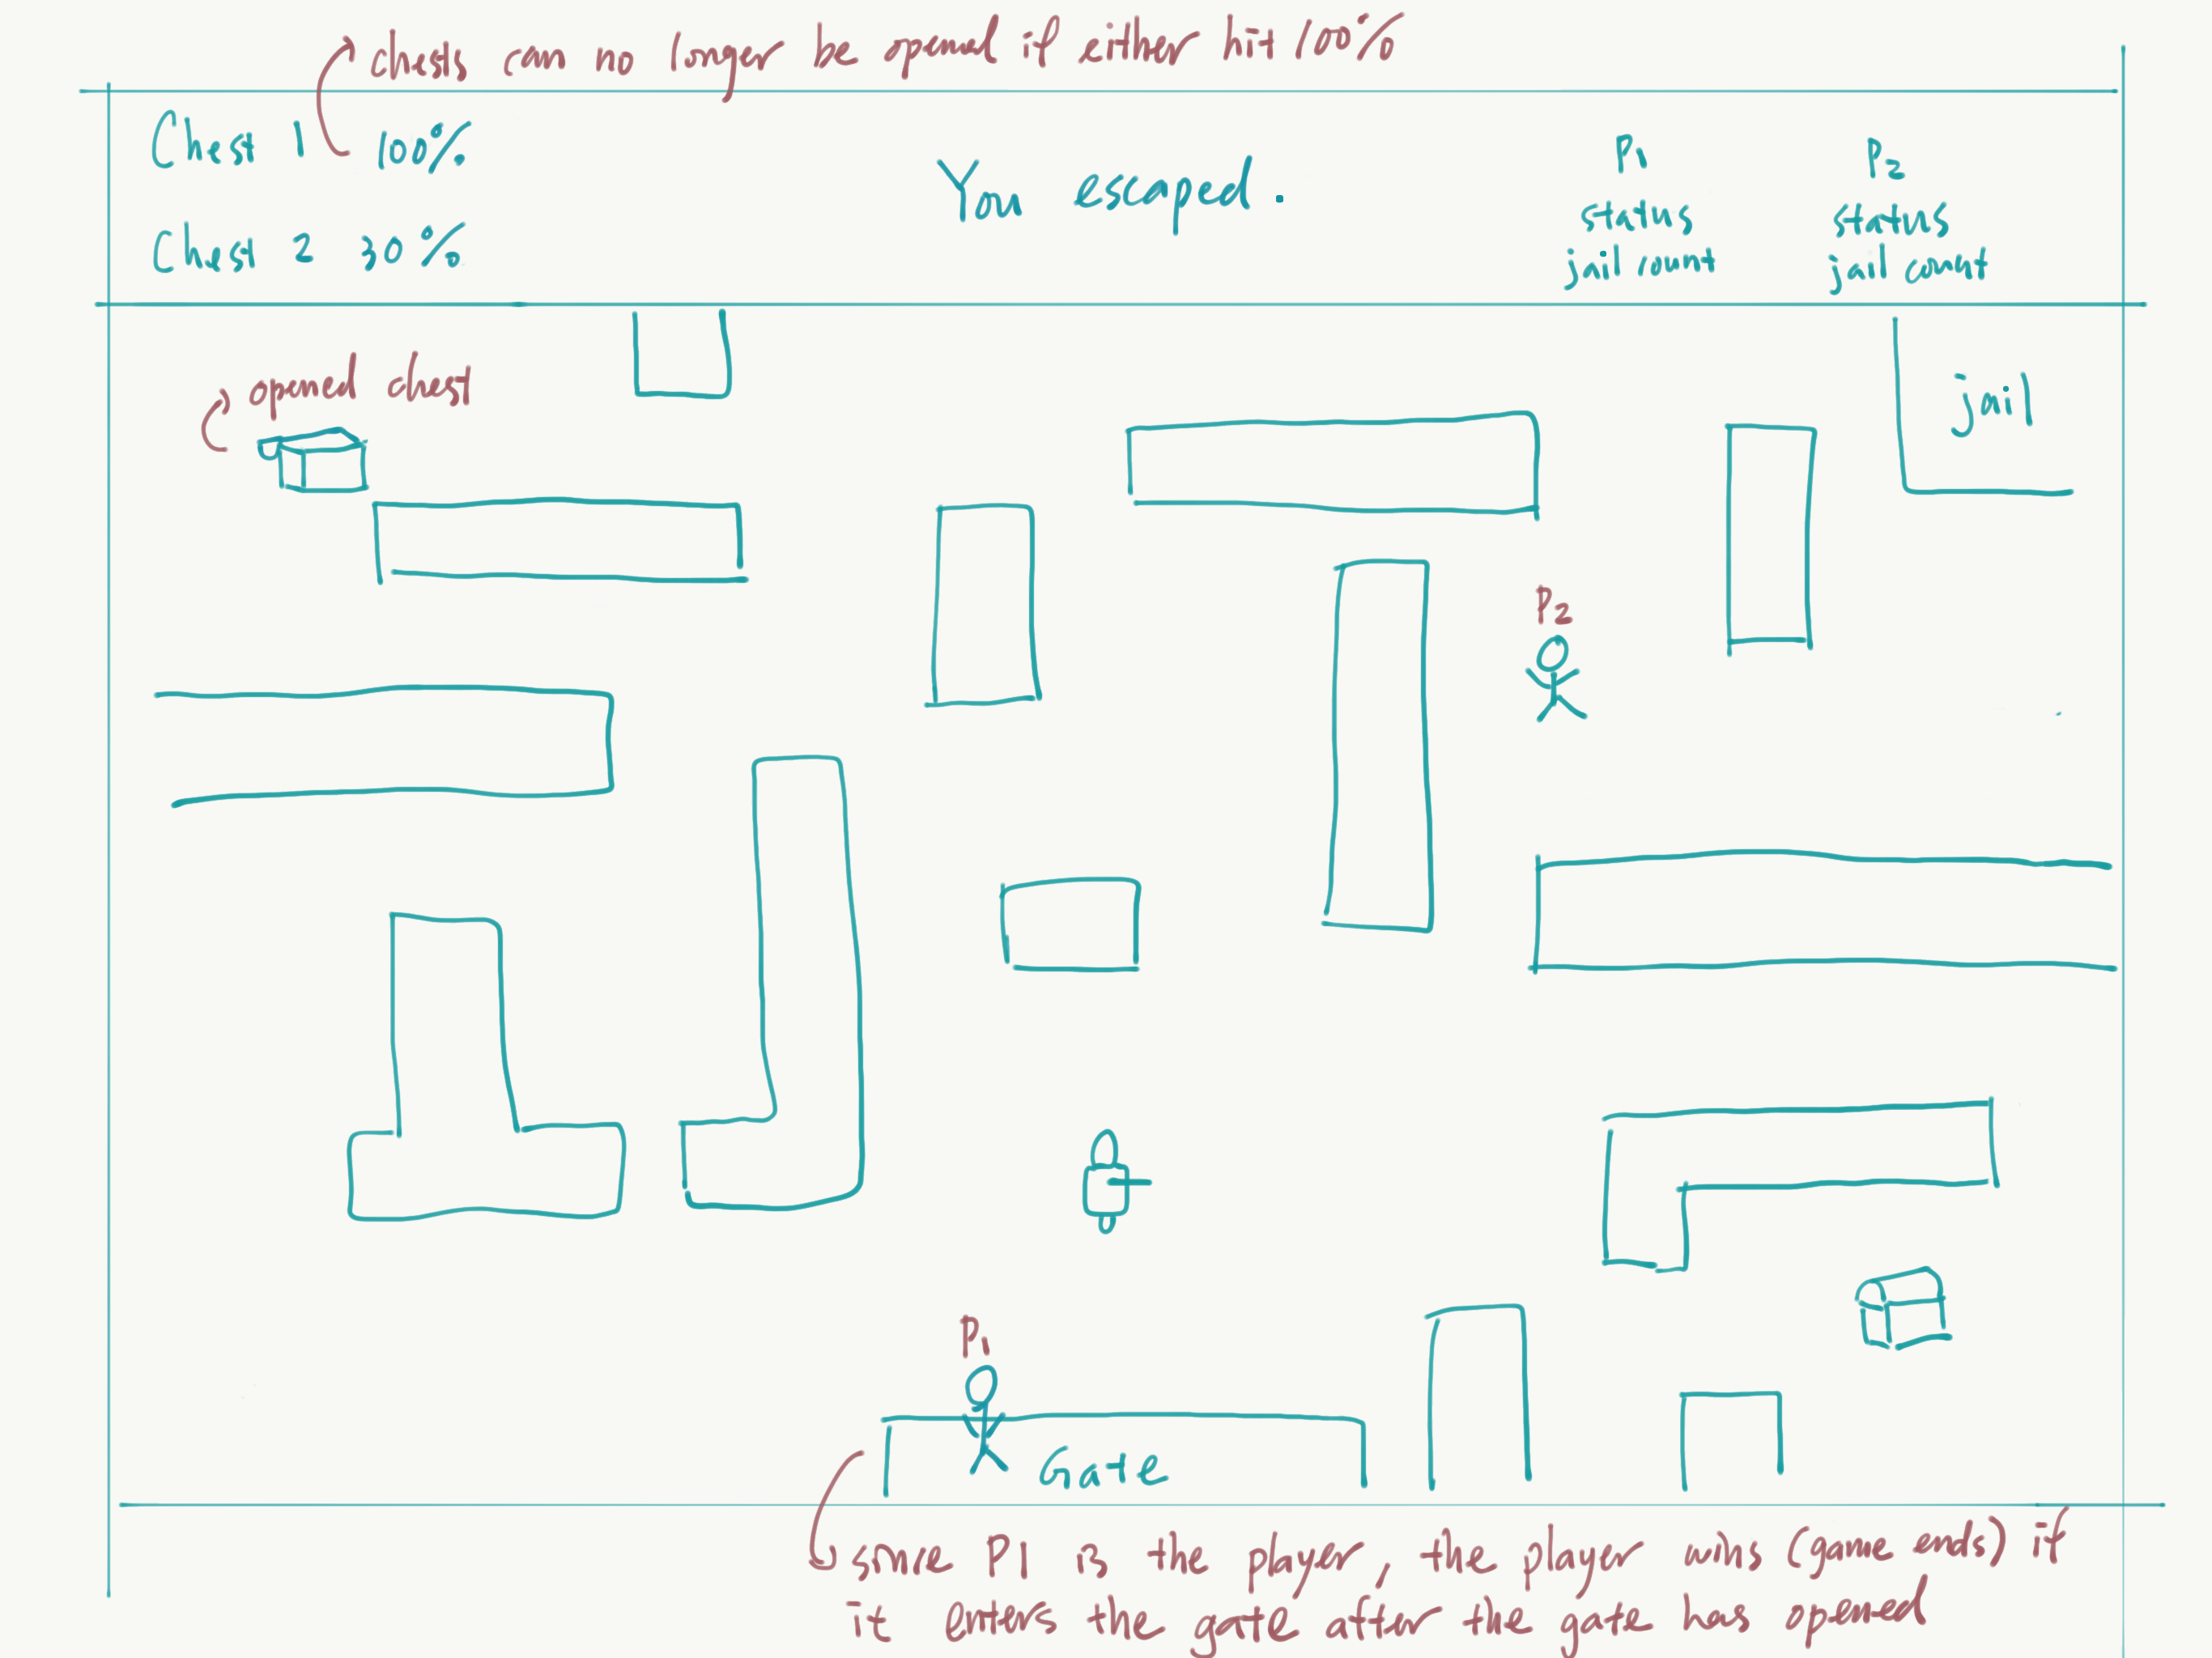 chests can no longer be opened if either hit 100%
Chest 1 100%
Chest 2 30%
You escaped.
P1
status
jail count
P2
status
jail count
opened chest
jail
P2
P1
Gate
since P1 is the player, the player wins (game ends) if
it enters the gate after the gate has opened